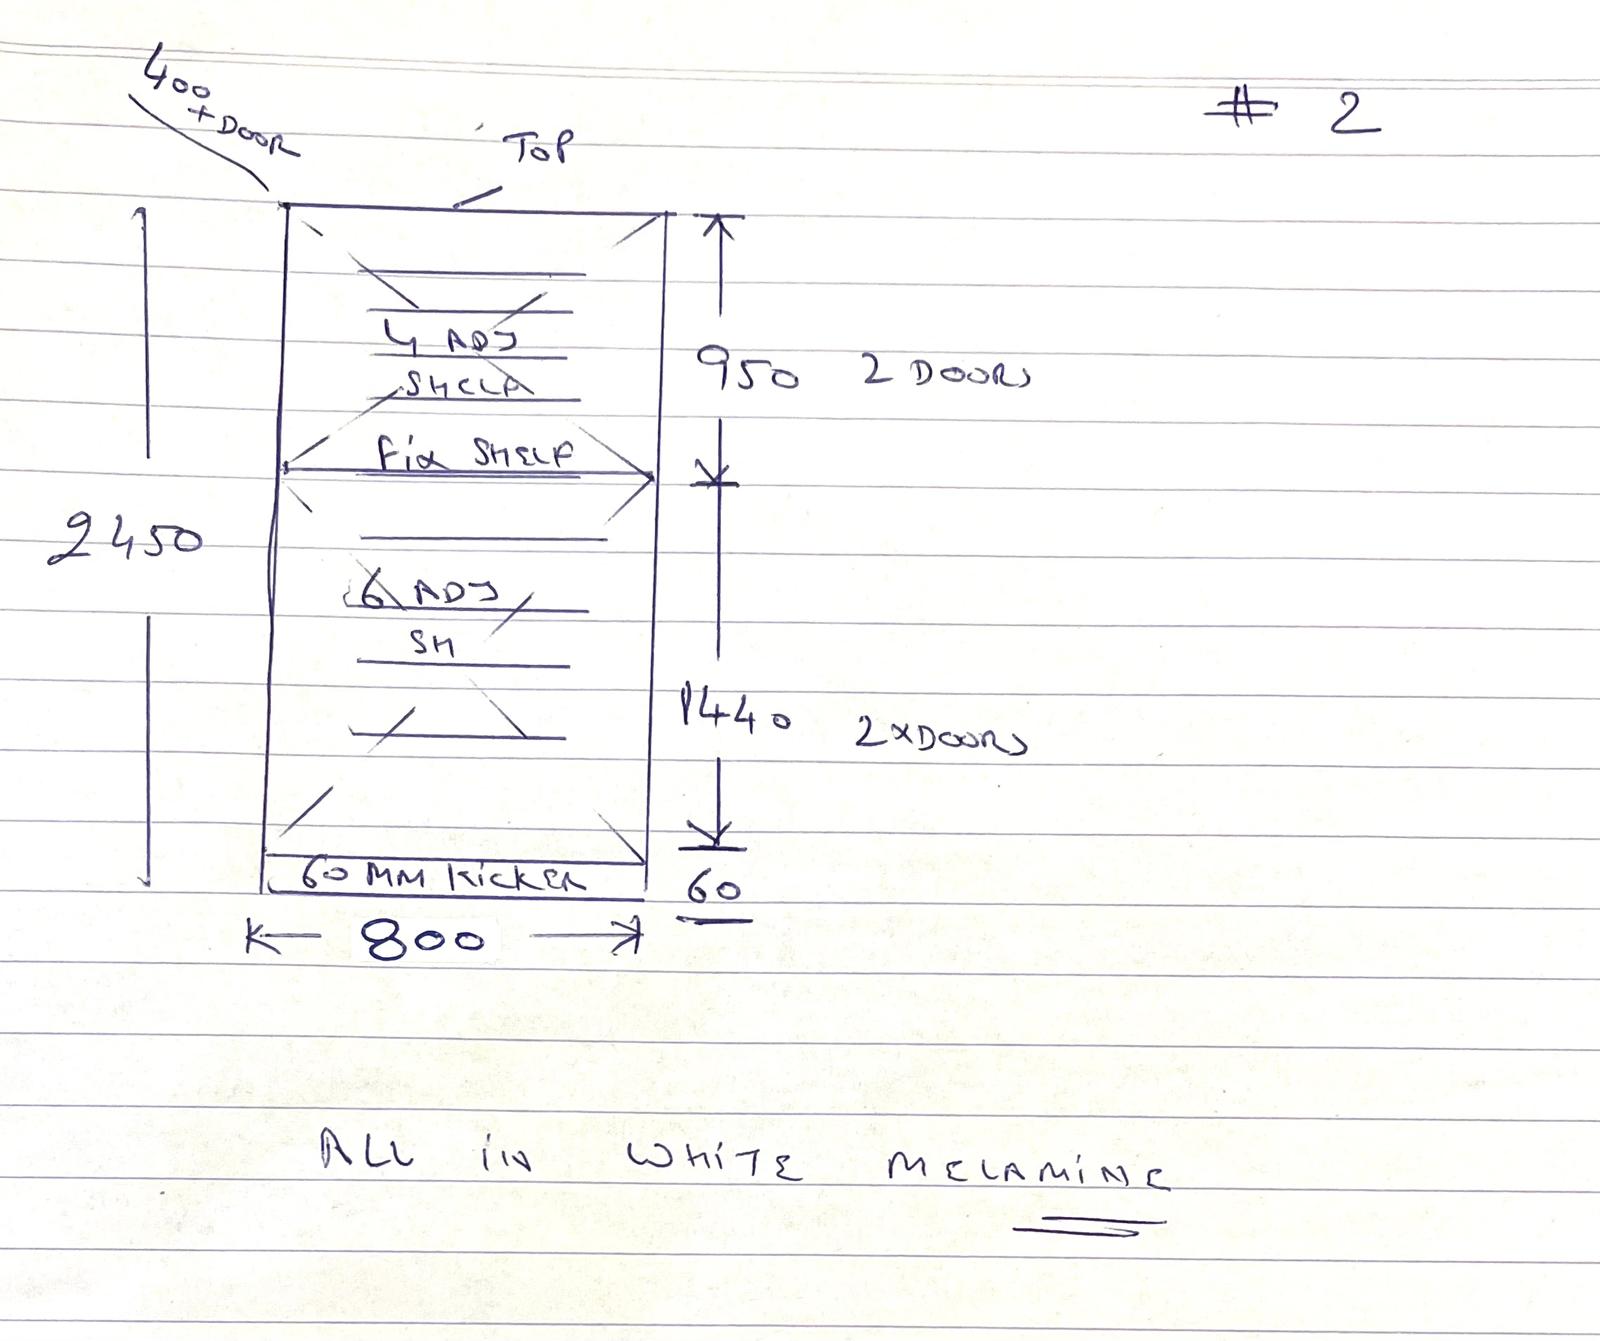 # 2
400
+ DOOR
TOP
4 ADJ
SHELF
950 2 DOORS
Fix SHELF
2450
6 ADJ
SH
1440 2xDOORS
60 MM KiCKER
60
800
ALL iN WHiTE MELAMiNE